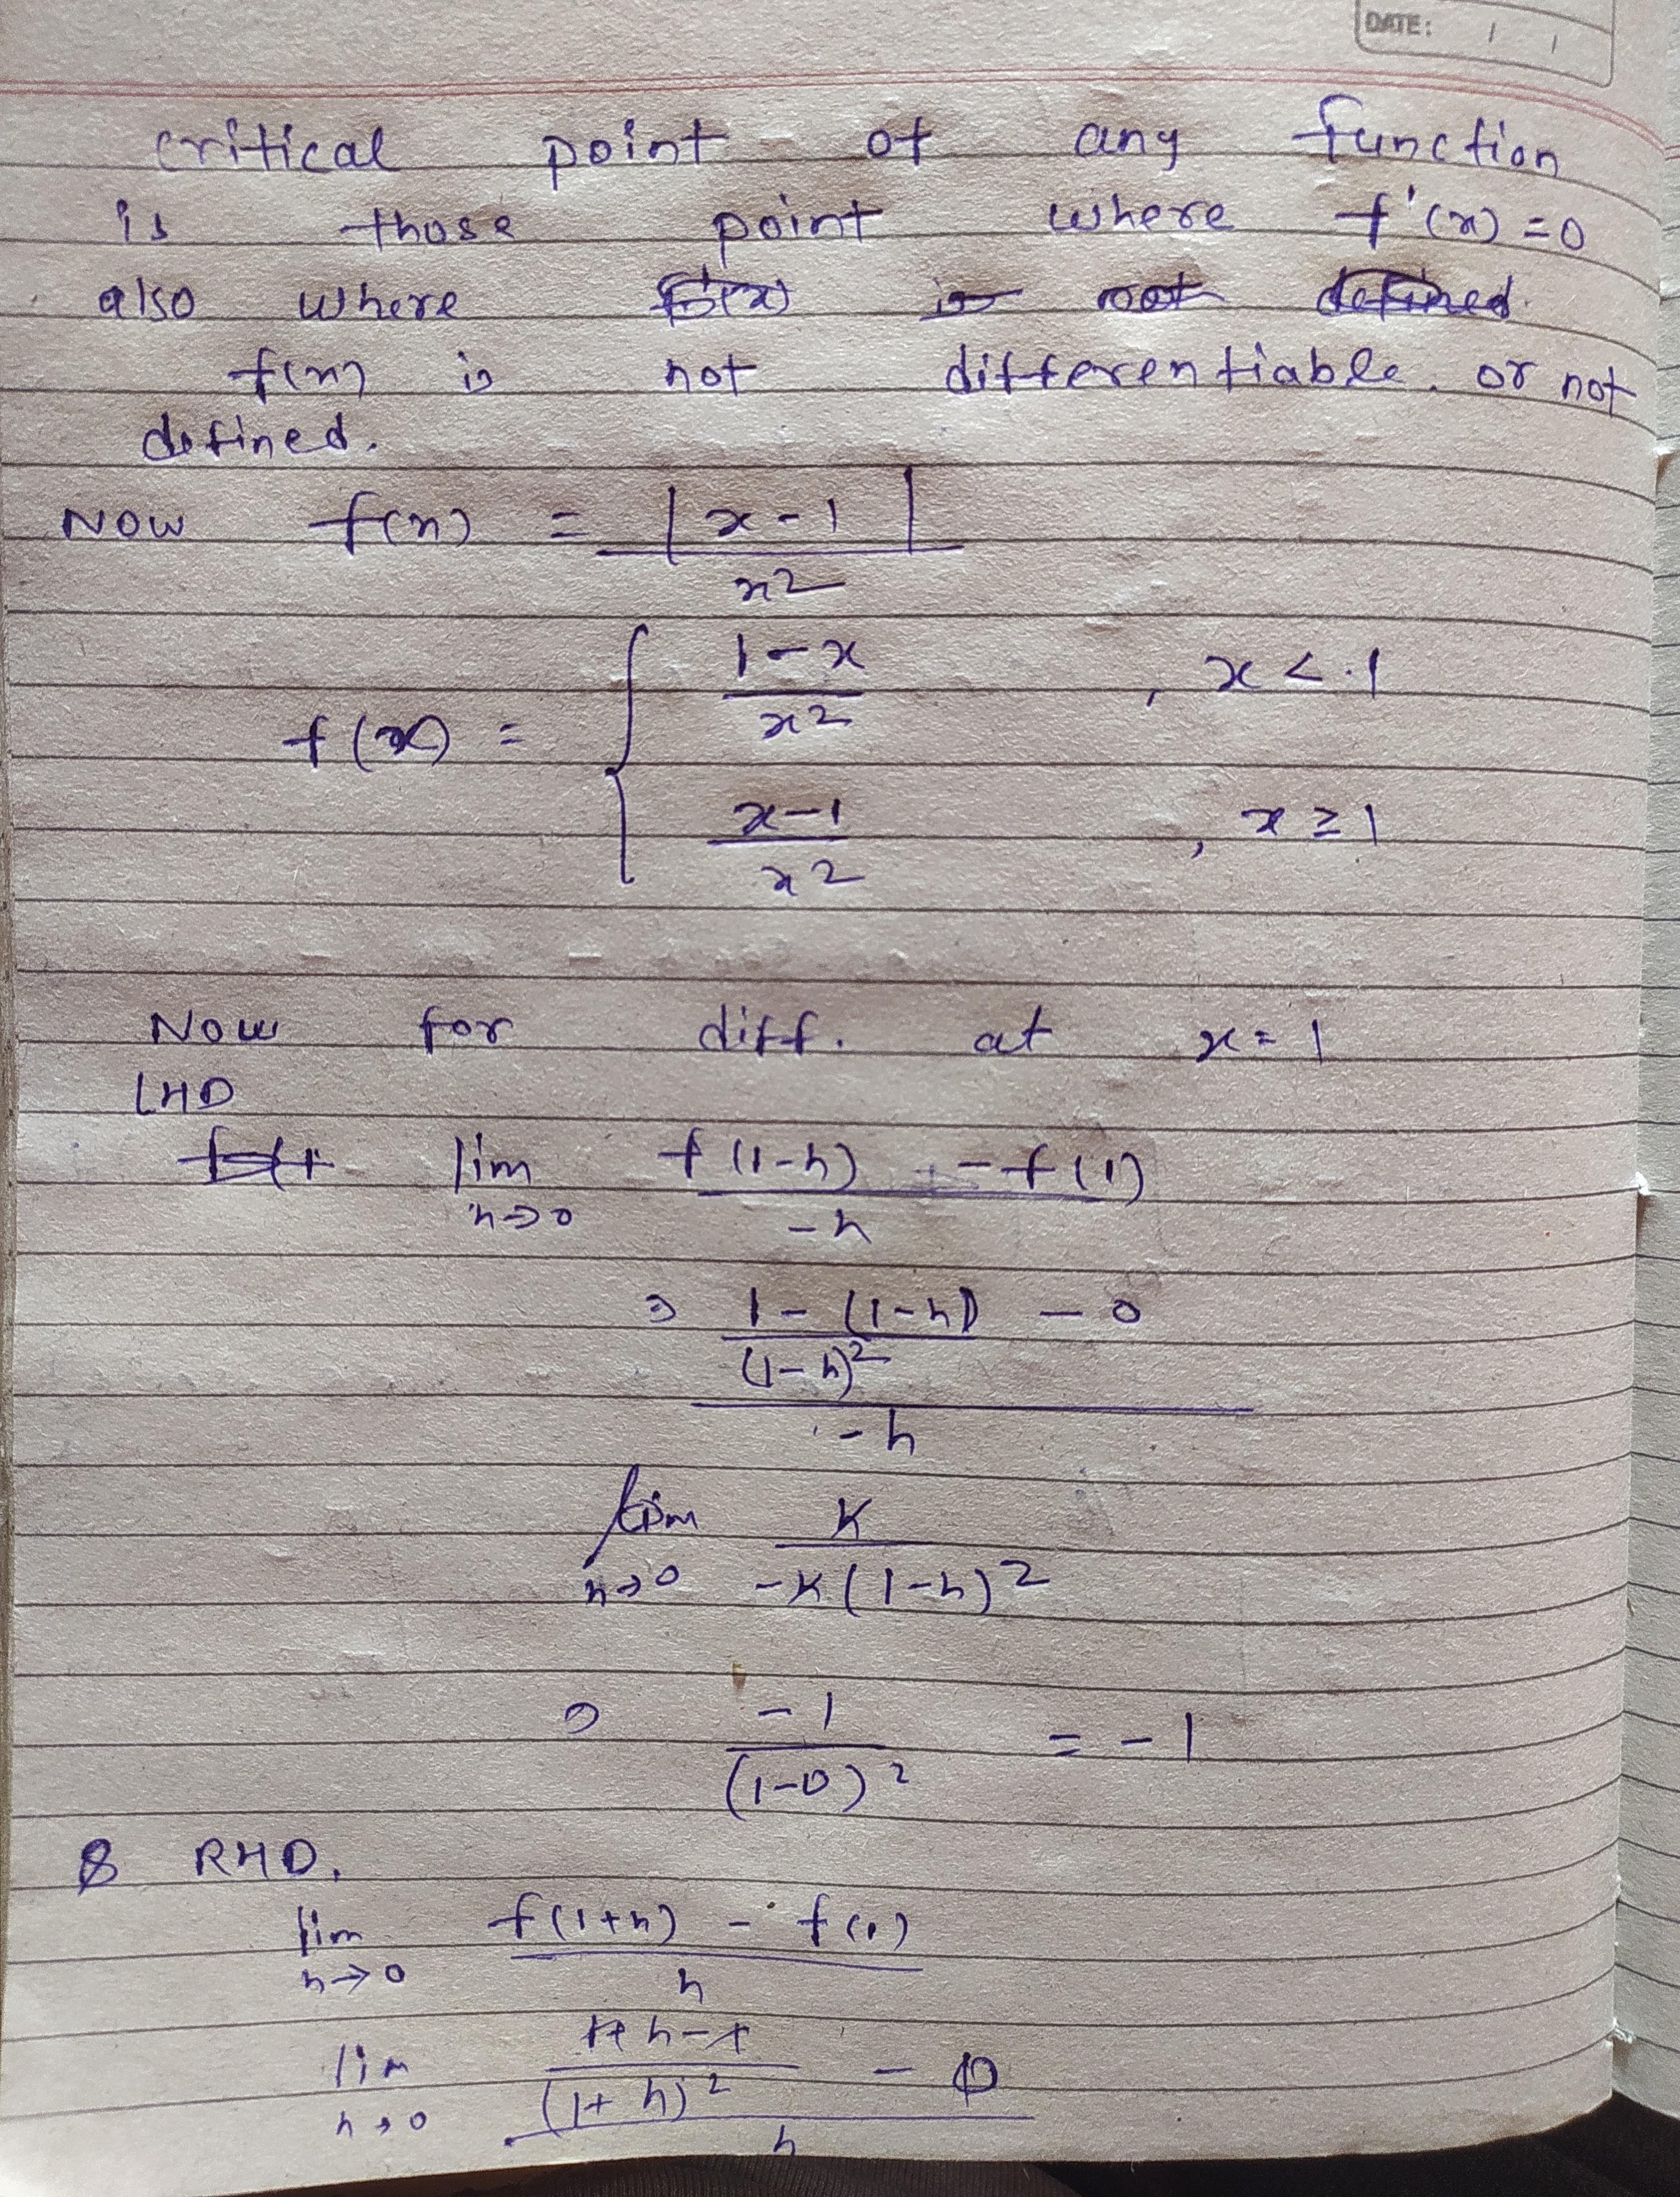 DATE: / /
critical point of any function
is those point where f'(x) = 0
also where f'(x) is not defined.
f(x) is not differentiable. or not
defined.
NOW f(x) = |x-1|
x2
1-x
, x < 1
x2
f(x) =
x-1
, x ≥ 1
x2
Now for diff. at x = 1
LHD
lim f(1-h) - f(1)
h→0 -h
⇒ 1 - (1-h) - 0
(1-h)2
-h
lim h
h→0 -h(1-h)2
⇒ -1 = -1
(1-0)2
& RHD.
lim f(1+h) - f(1)
h→0 h
lim 1+h-1 - 0
h→0 (1+h)2
h